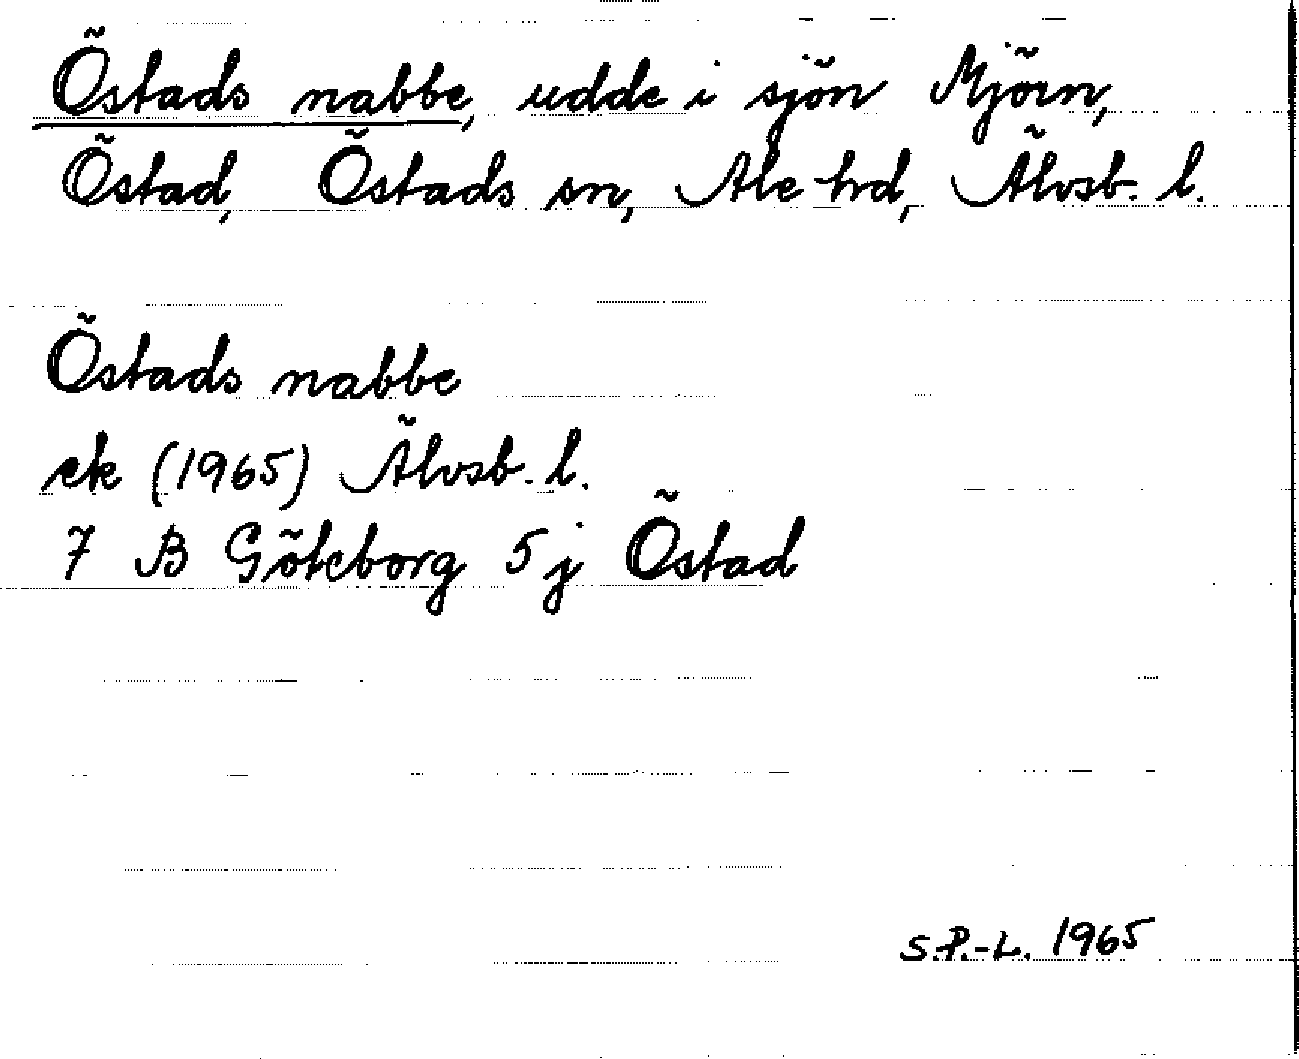 Östads nabbe, udde i sjön Mjörn,
Östad, Östads sn, Ale hd, Älvsb. l.
Östads nabbe
ek (1965) Älvsb. l.
7 B Göteborg 5 j Östad
S.P.-L. 1965